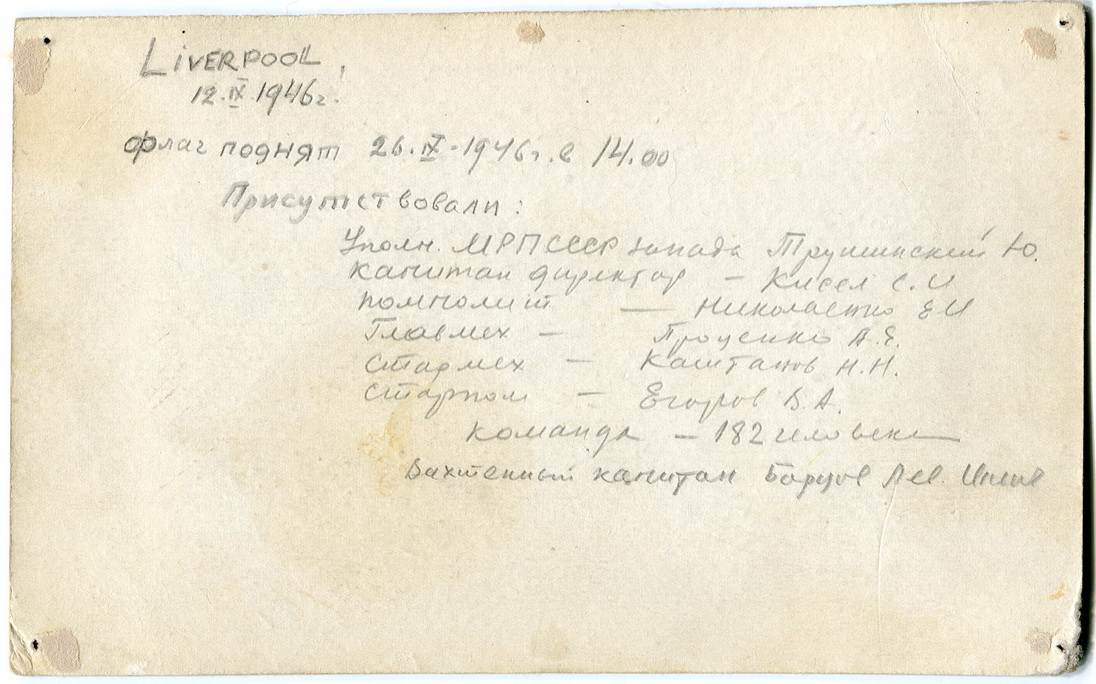 LIVERPOOL,
12.IX.1946г.
Флаг поднят 26.IX-1946г. в 14.00
Присутствовали:
Уполн. МРП СССР запада Ю.
капитан директор – Кисел С.И
помполит — Николаенко Е.И
Главмех – Проценко А.Е.
Стармех – Каштанов Н.Н.
Старпом – Егоров В.А.
команда – 182 человека
Вахтенный капитан